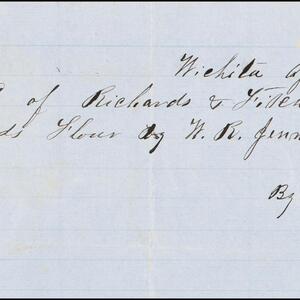 Wichita
of Richards &
Flour by W. R.
By